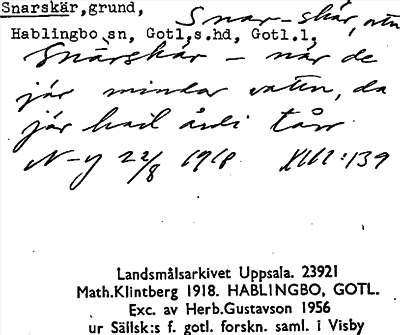 Snarskär, grund, Snar-skär,
Hablingbo sn, Gotl.s.hd, Gotl.l.
Snarskär – när de
jär mindar vatn, da
jär hail tårr
N-y 22/8 1918 XIII:139
Landsmålsarkivet Uppsala. 23921
Math.Klintberg 1918. HABLINGBO, GOTL.
Exc. av Herb.Gustavson 1956
ur Sällsk:s f. gotl. forskn. saml. i Visby